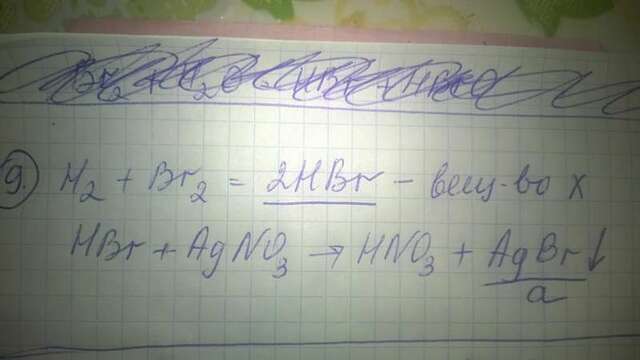 9. H₂ + Br₂ = 2HBr - вещ-во X
HBr + AgNO₃ → HNO₃ + AgBr↓
a